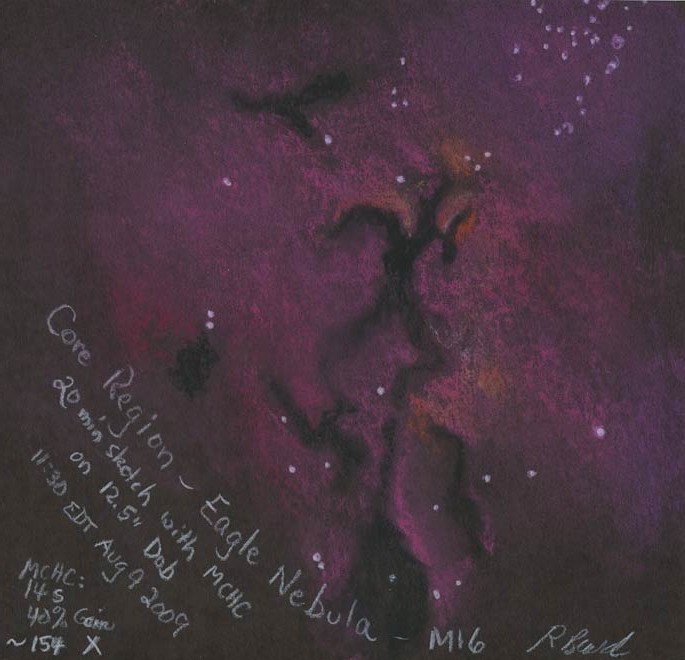 Core Region ~ Eagle Nebula - M16
20 min sketch with MCHC
on 12.5" Dob
11:30 EDT Aug 9 2009
MCHC:
14 s
40% Gain
~154 X